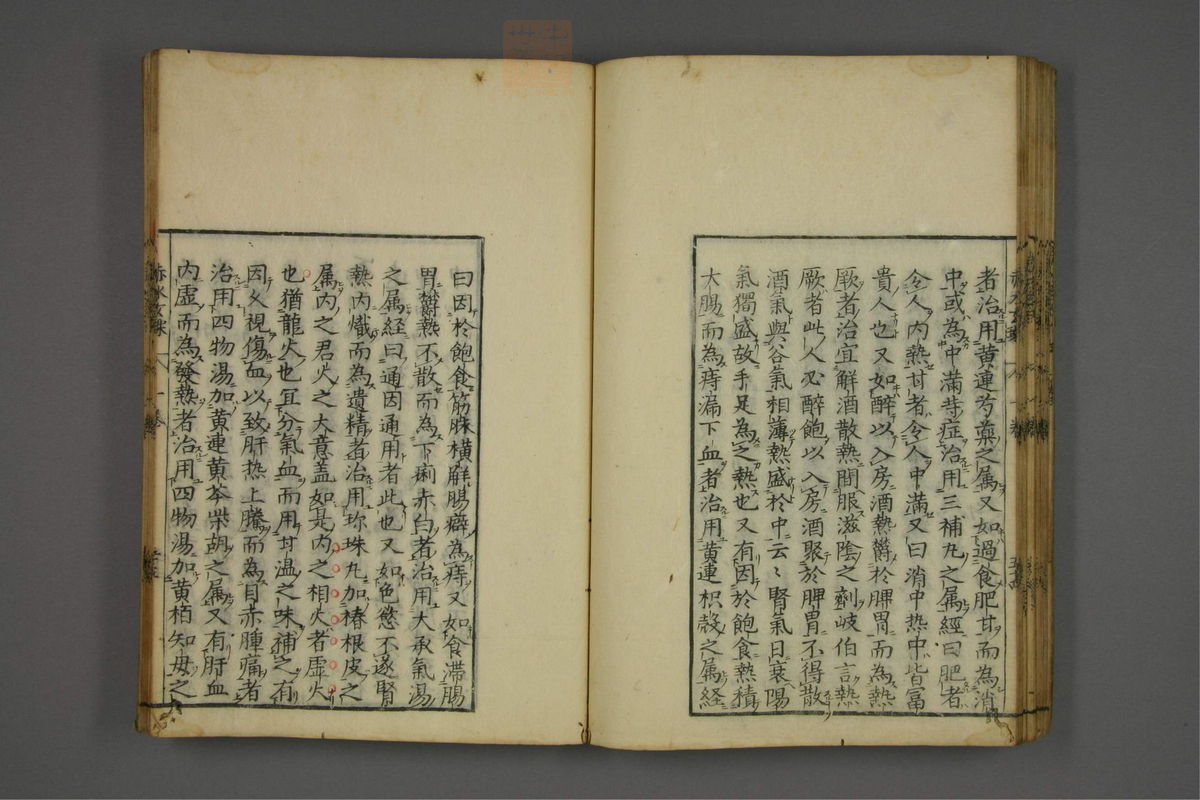 者治用黄連芍薬之属又如過食肥甘而為消
中或為中滿等症治用三補丸之属經曰肥者
令人内熱甘者令人中滿又曰消中热中皆冨
貴人也又如醉以入房酒熱欝於脾胃而為熱
厥者治宜解酒散熱間服滋陰之劑岐伯言熱
厥者此人必醉飽以入房酒聚於脾胃不得散
酒氣與谷氣相薄熱盛於中云〻腎氣日衰陽
氣獨盛故手足為之熱也又有因於飽食熱積
大腸而為痔漏下血者治用黄連枳殻之属経
曰因於飽食筋脉横解腸癖為痔又如食滞腸
胃欝熱不散而為下痢赤白者治用大承氣湯
之属経曰通因通用者此也又如色慾不遂腎
熱内熾而為遺精者治用珎珠丸加椿根皮之
属内之君火之大意盖如是内之相火者虚火
也猶龍火也宜分氣血而用甘温之味補之有
因久視傷血以致肝热上騰而為目赤腫痛者
治用四物湯加黄連黄芩柴胡之属又有肝血
内虚而為發熱者治用四物湯加黄栢知母之